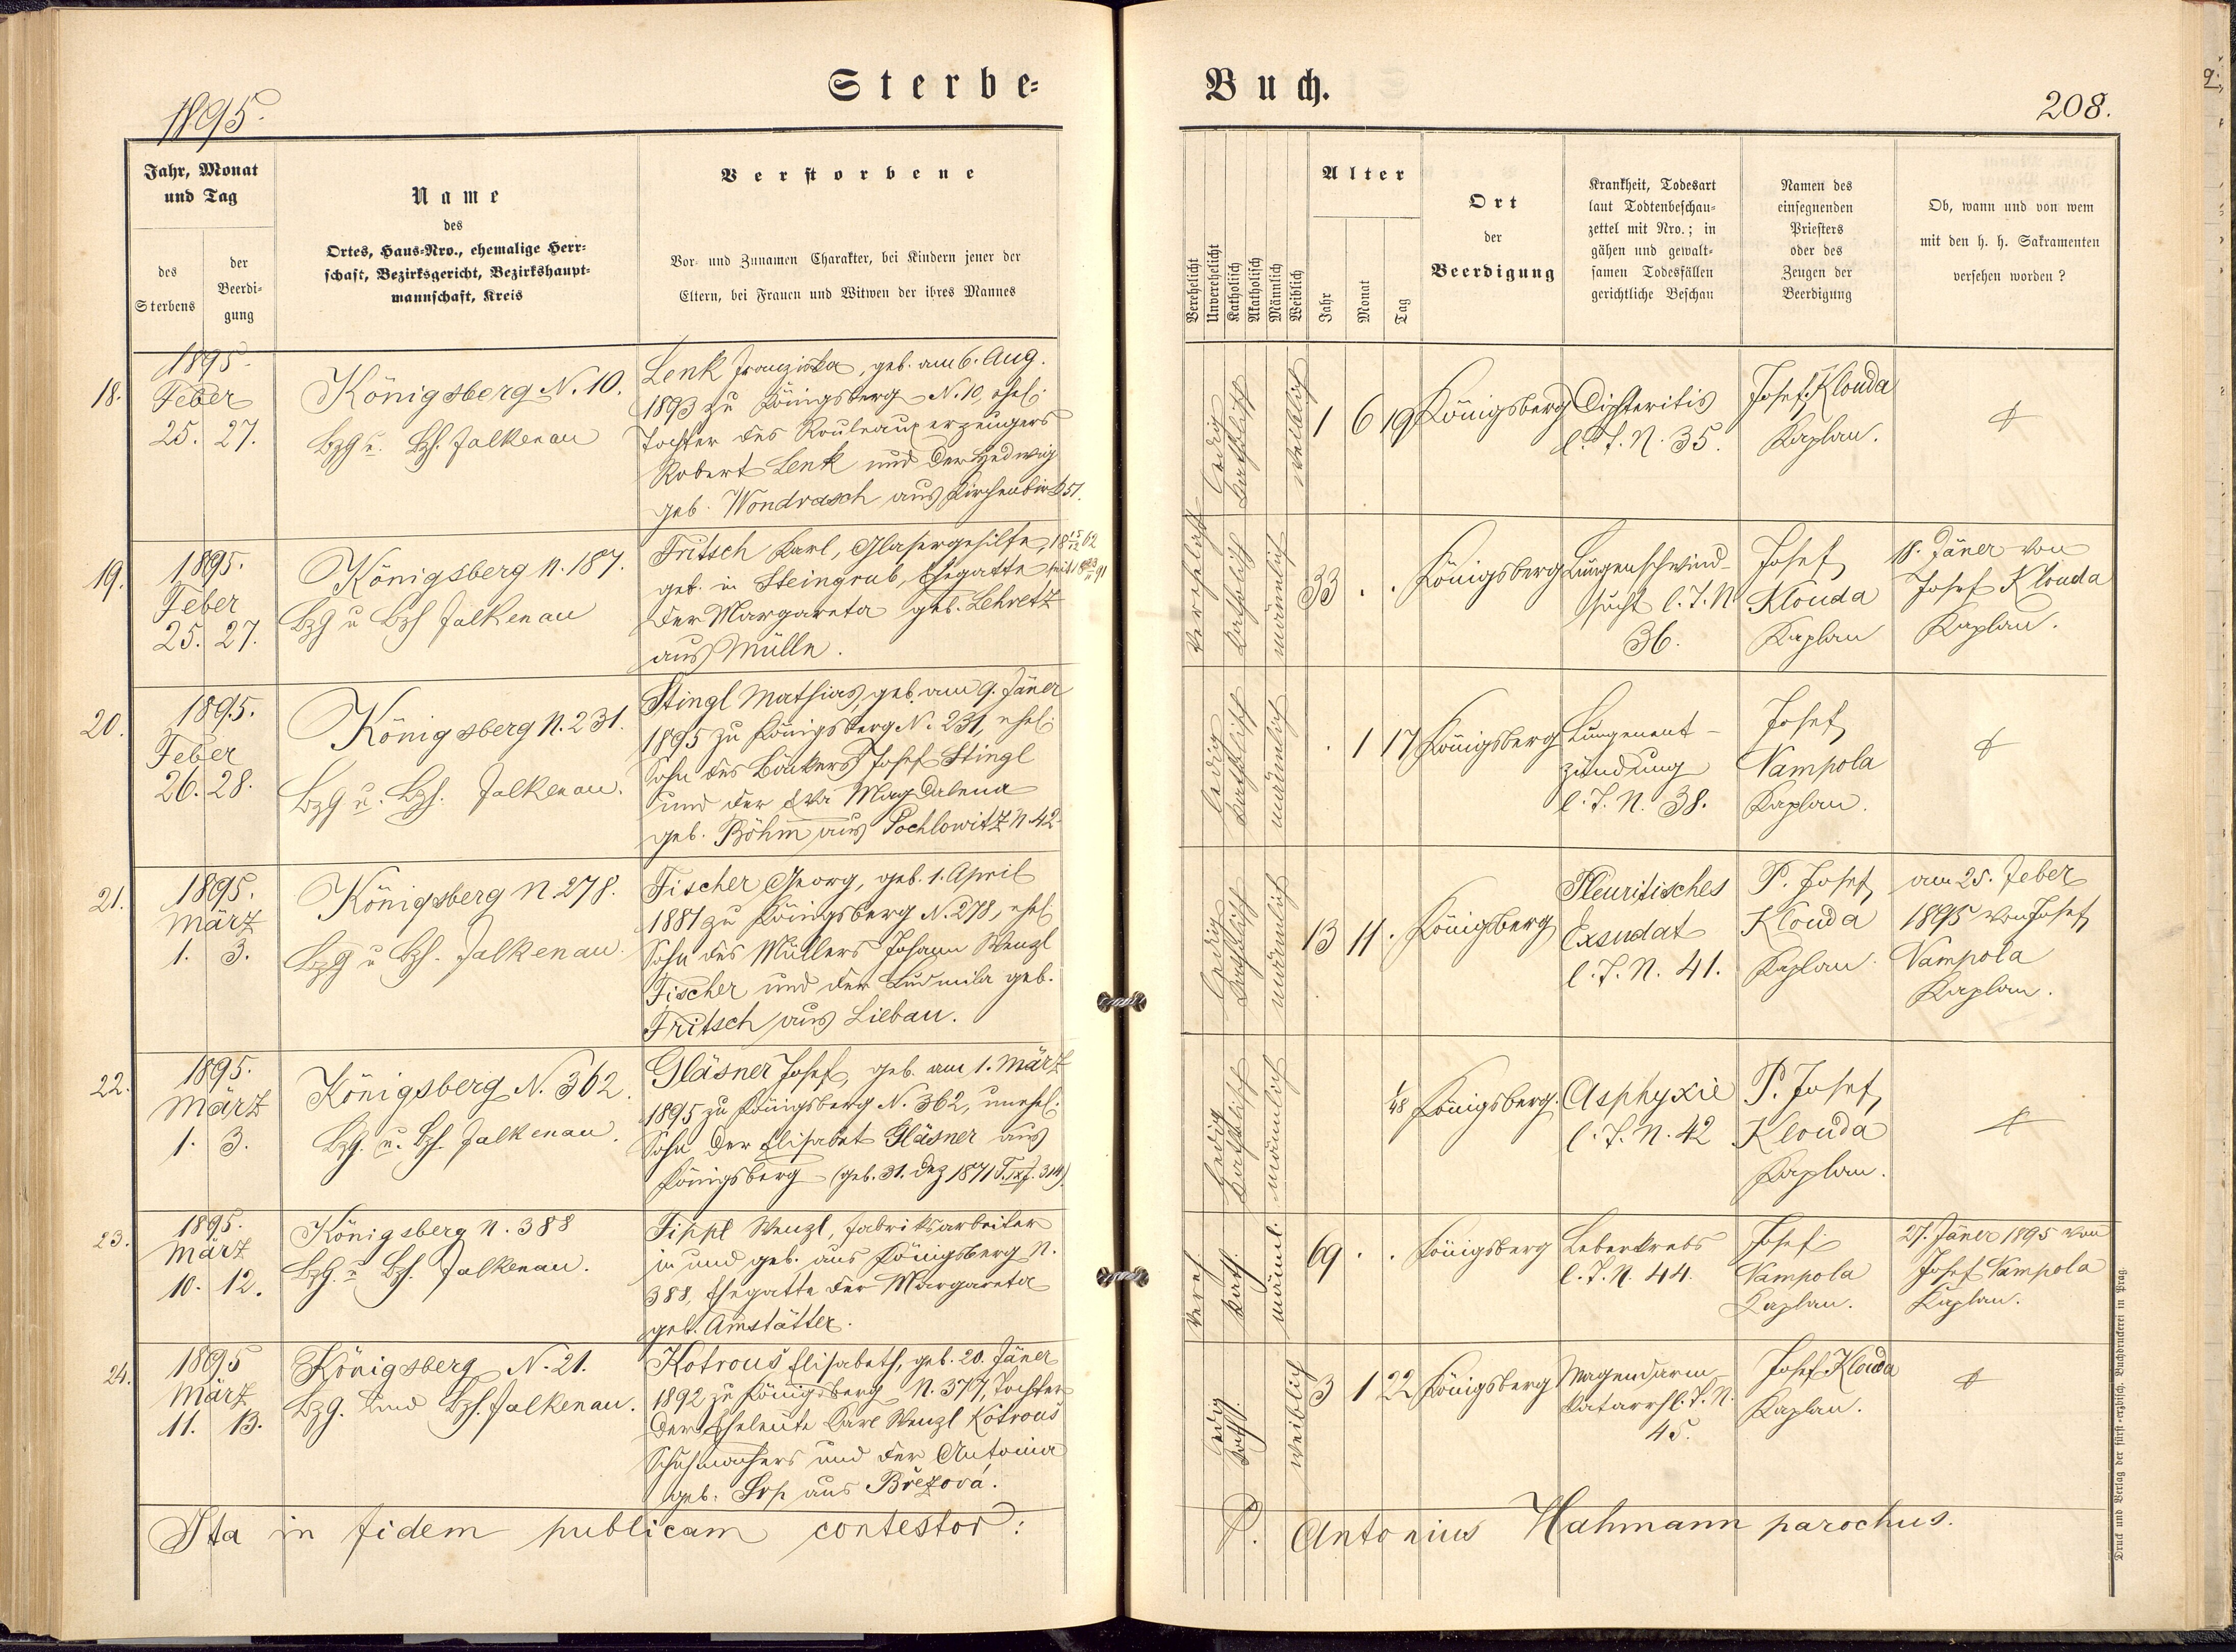 Sterbe-
1895.
Jahr, Monat
und Tag
des
Sterbens
der
Beerdi-
gung
Name
des
Ortes, Haus-Nro., ehemalige Herr-
schaft, Bezirksgericht, Bezirkshaupt-
mannschaft, Kreis
Verstorbene
Vor- und Zunamen Charakter, bei Kindern jener der
Eltern, bei Frauen und Witwen der ihres Mannes
18.
1895
Feber
25. 27.
Königsberg N. 10.
Bzg u. Bzh. Falkenau
Lenk Franziska, geb. am 6. Aug.
1893 zu Königsberg N. 10, ehel.
Tochter des Rouleauxerzeugers
Robert Lenk und der Hedwig
geb. Wondrasch aus Kirchenbirk 51.
19.
1895.
Feber
25. 27.
Königsberg N. 187.
Bzg u Bzh Falkenau
Fritsch Karl, Glasergehilfe, 18 15/12 62
geb. in Steingrub, Ehegatte seit
der Margareta geb. Lehretz
aus Mülln.
20.
1895.
Feber
26. 28.
Königsberg N. 231.
Bzg u. Bzh. Falkenau.
Stingl Mathias, geb. am 9. Jäner
1895 zu Königsberg N. 231, ehel.
Sohn des Bäckers Josef Stingl
und der Eva Magdalena
geb. Böhm aus Pochlowitz N. 42.
21.
1895.
März
1. 3.
Königsberg N. 278.
Bzg u Bzh. Falkenau.
Fischer Georg, geb. 1. April
1881 zu Königsberg N. 278, ehel.
Sohn des Müllers Johann Wenzl
Fischer und der Ludmila geb.
Fritsch aus Liebau.
22.
1895.
März
1. 3.
Königsberg N. 362.
Bzg. u. Bzh. Falkenau.
Gläsner Josef, geb. am 1. März
1895 zu Königsberg N. 362, unehel.
Sohn der Elisabet Gläsner aus
Königsberg (geb. 31. Dez 1871 T. IX f. 314).
23.
1895.
März
10. 12.
Königsberg N. 388
Bzg. u Bzh. Falkenau.
Tippl Wenzl, Fabriksarbeiter
in und geb. aus Königsberg N.
388, Ehegatte der Margareta
geb. Amstätter.
24.
1895
März
11. 13.
Königsberg N. 21.
Bzg. und Bzh. Falkenau.
Kotrouš Elisabeth, geb. 20. Jäner
1892 zu Königsberg N. 377, Tochter
der Eheleute Karl Wenzl Kotrouš
Schuhmachers und der Antonia
geb. Srp aus Březová.
Ita in fidem publicam contestor:
Buch.
208.
Verehelicht
Unverehelicht
Katholisch
Akatholisch
Männlich
Weiblich
Alter
Jahr
Monat
Tag
Ort
der
Beerdigung
Krankheit, Todesart
laut Todtenbeschau-
zettel mit Nro.; in
gähen und gewalt-
samen Todesfällen
gerichtliche Beschau
Namen des
einsegnenden
Priesters
oder des
Zeugen der
Beerdigung
Ob, wann und von wem
mit den h. h. Sakramenten
versehen worden?
ledig
katholisch
weiblich
1 6 19
Königsberg
Difteritis
l. T. N. 35.
Josef Klouda
Kaplan.
verehelicht
katholisch
männlich
33 . .
Königsberg
Lungenschwind-
sucht l. T. N.
36.
Josef
Klouda
Kaplan
18. Jäner von
Josef Klouda
Kaplan.
ledig
katholisch
männlich
. 1 17
Königsberg
Lungenent-
zündung
l. T. N. 38.
Josef
Vampola
Kaplan.
ledig
katholisch
männlich
13 11 .
Königsberg
Pleuritisches
Exsudat
l. T. N. 41.
P. Josef
Klouda
Kaplan.
am 25. Feber
1895 von Josef
Vampola
Kaplan.
ledig
katholisch
männlich
1/48
Königsberg.
Asphyxie
l. T. N. 42
P. Josef
Klouda
Kaplan.
vereh.
kath.
männl.
69 . .
Königsberg
Leberkrebs
l. T. N. 44.
Josef
Vampola
Kaplan.
27. Jäner 1895 von
Josef Vampola
Kaplan.
ledig
kath.
weiblich
3 1 22
Königsberg
Magendarm
katarrh l. T. N.
45.
Josef Klouda
Kaplan.
P. Antonius Hahmann parochus.
Druck und Verlag der fürst-erzbisch. Buchdruckerei in Prag.
9.